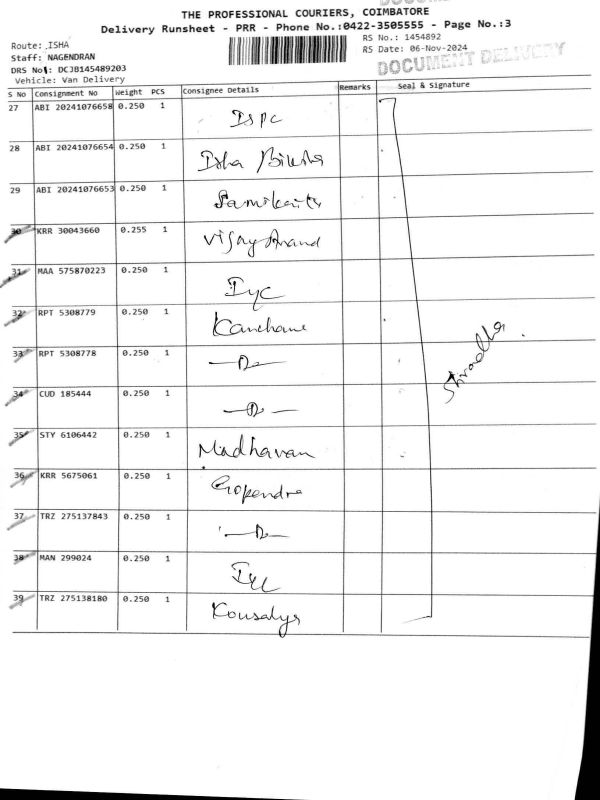 THE PROFESSIONAL COURIERS, COIMBATORE
Delivery Runsheet - PRR - Phone No.:0422-3505555 - Page No.:3
Route: ISHA
RS No.: 1454892
Staff: NAGENDRAN
RS Date: 06-Nov-2024
DOCUMENT DELIVERY
DRS No: DCJB145489203
Vehicle: Van Delivery
S No Consignment No Weight PCS Consignee Details Remarks Seal & Signature
27 ABI 20241076658 0.250 1 Ispc
28 ABI 20241076654 0.250 1 Isha
29 ABI 20241076653 0.250 1
30 KRR 30043660 0.255 1 Vijay Anand
31 MAA 575870223 0.250 1 Iyc
32 RPT 5308779 0.250 1 Kanchana
33 RPT 5308778 0.250 1 —Do—
34 CUD 185444 0.250 1 —Do—
35 STY 6106442 0.250 1 Madhavan
36 KRR 5675061 0.250 1 Gopendra
37 TRZ 275137843 0.250 1 —Do—
38 MAN 299024 0.250 1 Iyc
39 TRZ 275138180 0.250 1 Kousalya
Shradha